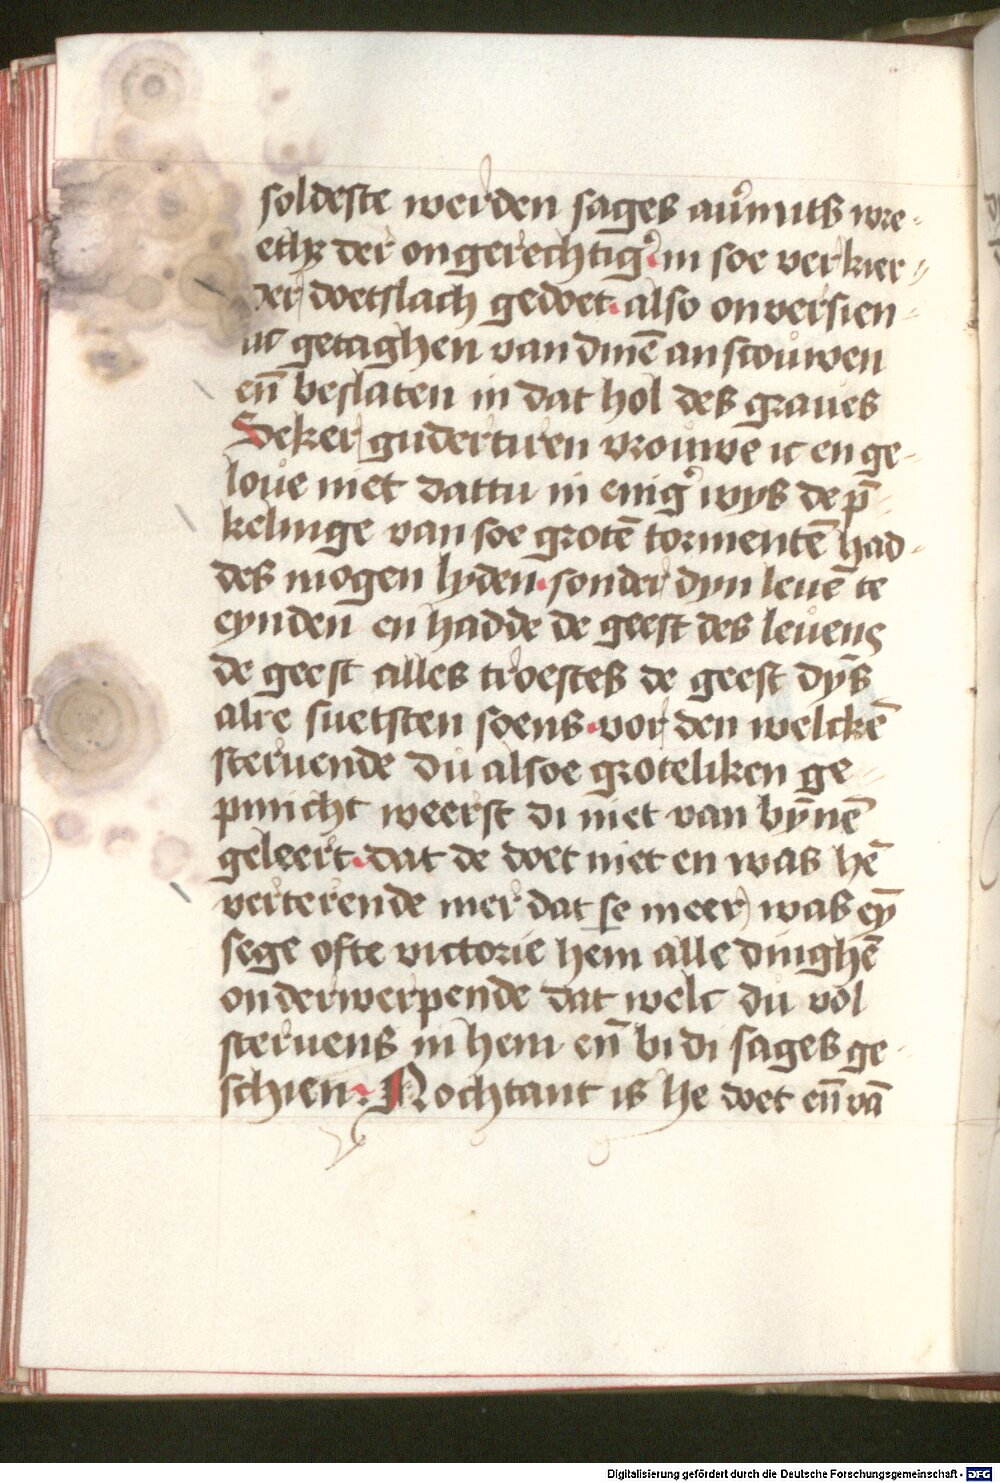 soldeste werden sages auͤmits wre-
etħ der ongerechtig͛ in soe verkier-
der doetslach gedoet also onversien-
uc getaghen van dinē anscouwen
en̄ beslaten in dat hol des graues
Seker guderturen vrouwe ic en ge-
loue niet dattu in enig͛ wys de p̄-
kelinge van soe grotē tormentē had-
des mogen lyden sonder dyn leuē te
eynden en hadde de geest des leuens
de geest alles troestes de geest dyn̄s
alre suetsten soens vor den welckē
steruende du alsoe groteliken ge-
pinicht weerst di niet van bȳnē
geleert dat de doet niet en was hē
verterende mer dat se meer was ey̅
sege ofte victorie hem alle dinghē
onderwerpende dat welc du vol
steruens in hem en̄ bi di sages ge-
schien. Nochtant is he doet en̄ vā
Digitalisierung gefördert durch die Deutsche Forschungsgemeinschaft - DFG